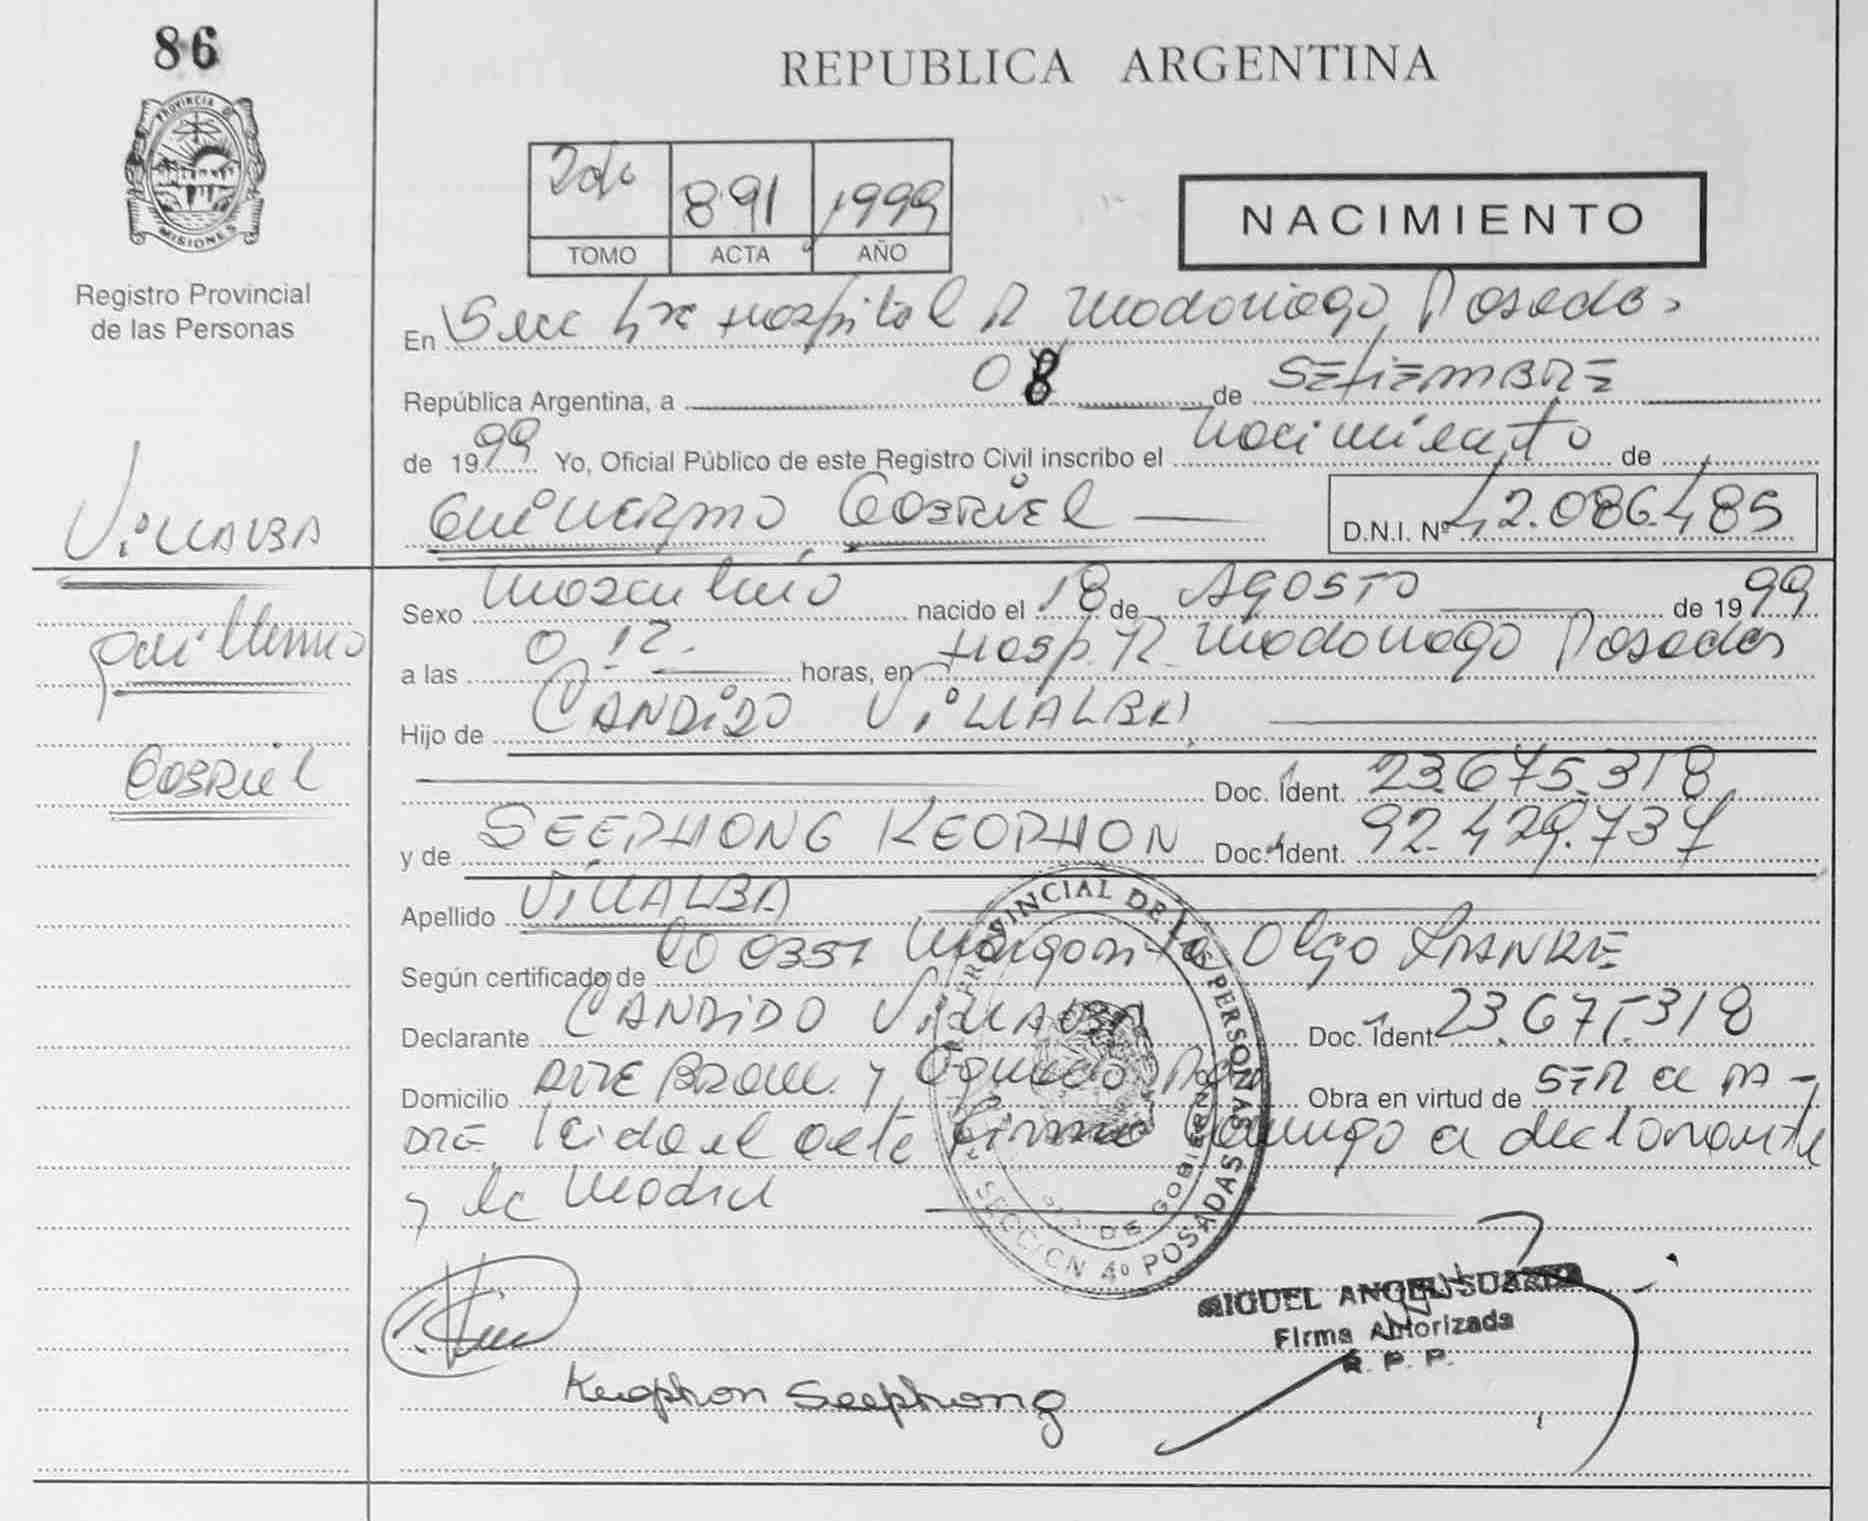 86
REPUBLICA ARGENTINA
PROVINCIA DE
MISIONES
Registro Provincial
de las Personas
2do 891 1999
TOMO ACTA AÑO
NACIMIENTO
En Secc 4ta Hospital R Madariaga, Posadas
República Argentina, a 08 de SETIEMBRE
de 1999 Yo, Oficial Público de este Registro Civil inscribo el nacimiento de
VILLALBA
GUILLERMO GABRIEL
D.N.I. Nº 42.086.485
Guillermo
GABRIEL
Sexo masculino nacido el 18 de AGOSTO de 1999
a las 0 12. horas, en Hosp. R. Madariaga Posadas
Hijo de CANDIDO VILLALBA
Doc. Ident. 23.675.318
y de SEEPHONG KEOPHON Doc. Ident. 92.429.737
Apellido VILLALBA
Según certificado de Margarita Olga
Declarante CANDIDO VILLALBA Doc. Ident. 23.675.318
Domicilio ALTE BROWN y Obra en virtud de SER el PA-
DRE Leida el acta firma conmigo el declarante
y la madre
PROVINCIAL DE LAS PERSONAS
DE GOBIERNO
SECCION 4º POSADAS
MIGUEL ANGEL SUAREZ
Firma Autorizada
R. P. P.
Keophon Seephong